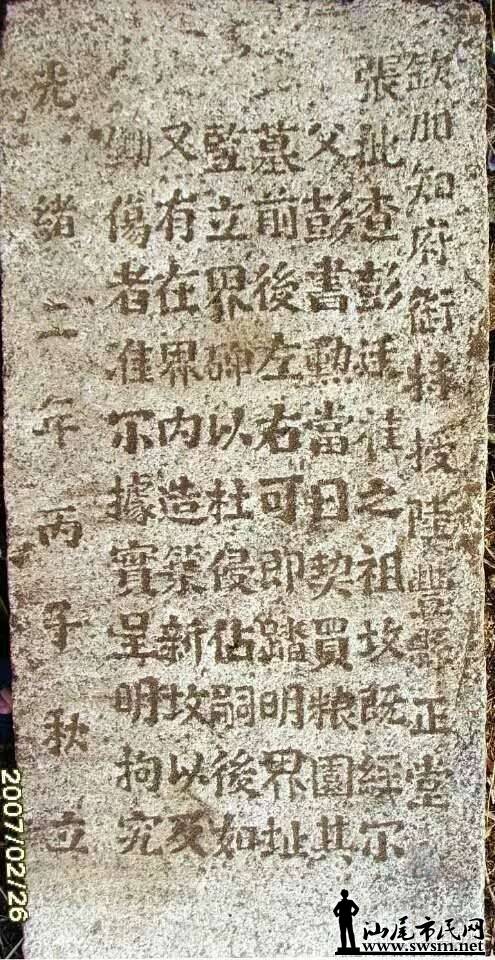 欽加知府銜特授陸豐縣正堂
張批查彭廷桂之祖坟既經尔
父彭書勳當日契買粮園其
墓前後左右可即踏明界址
竪立界碑以杜侵佔嗣後如
又有在界内造築新坟以及
鋤傷者准尔據實呈明拘究
光緒二年丙子秋立
2007/02/26
汕尾市民网
www.swsm.net